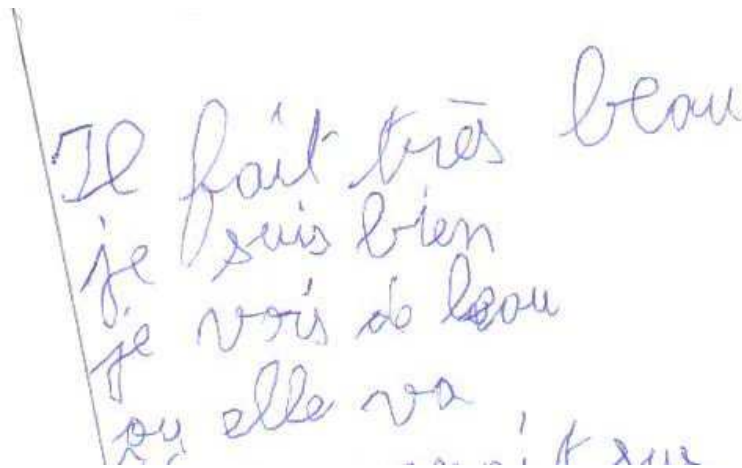 Il fait très beau
je suis bien
je vois do leau
ou elle va
sur